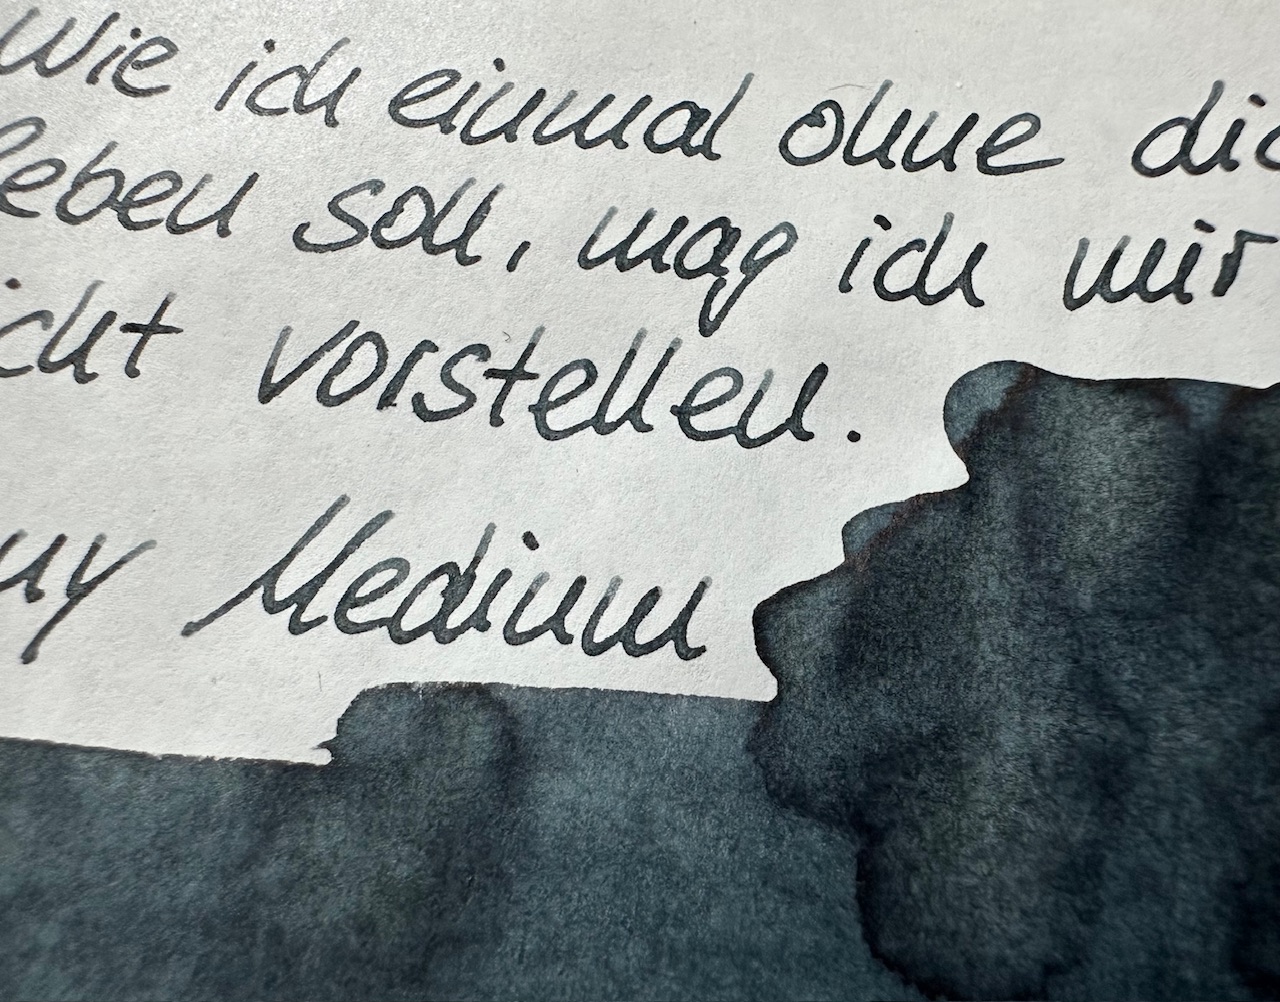 Wie ich einmal ohne dic
leben soll, mag ich mir
icht vorstellen.
Medium